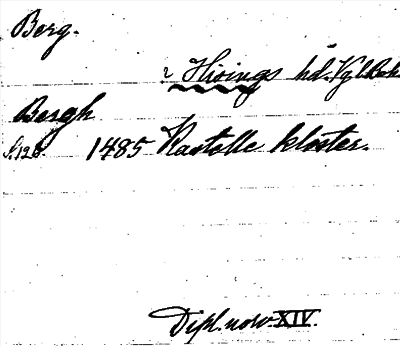 Berg.
? Hisings hd. Kgl. Boh.
Bergh
s. 126. 1485 Kastelle kloster.
Dipl. norv. XIV.